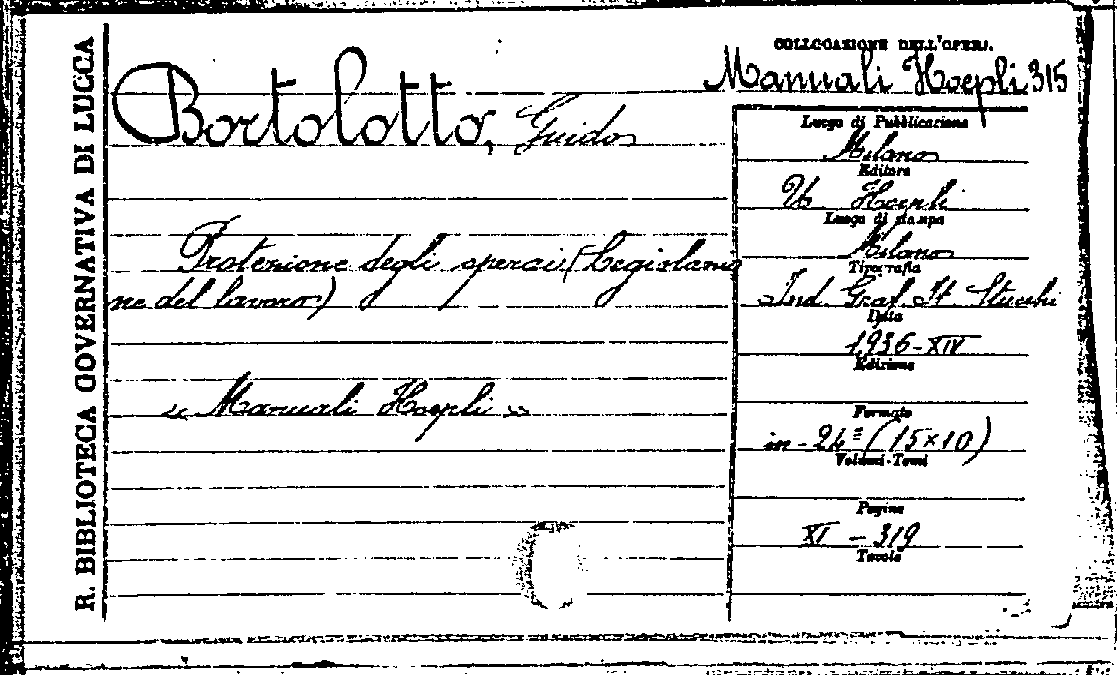 R. BIBLIOTECA GOVERNATIVA DI LUCCA
Bortolotto, Guido
Protezione degli operai (Legislazio
ne del lavoro)
« Manuali Hoepli »
COLLOCAZIONE DELL'OPERA.
Manuali Hoepli 315
Luogo di Pubblicazione
Milano
Editore
U. Hoepli
Luogo di stampa
Milano
Tipografia
Ind. Graf. It. Stucchi
Data
1936-XIV
Edizione
Formato
in-24º (15×10)
Volumi-Tomi
Pagine
XI - 319
Tavole